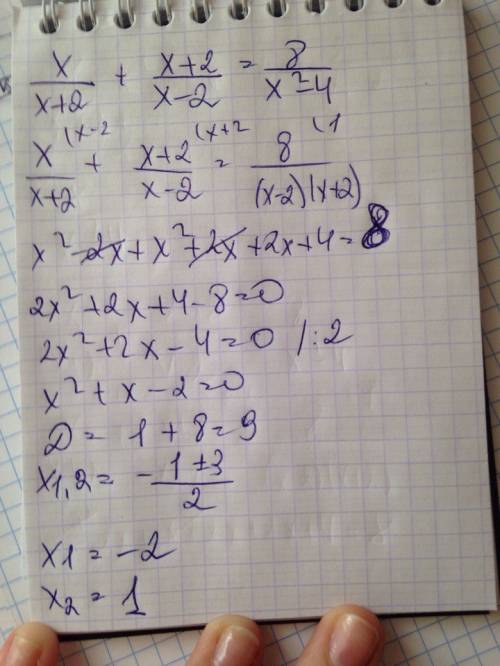 x/(x+2) + (x+2)/(x-2) = 8/(x²-4)
x(x-2/(x+2) + x+2(x+2/(x-2) = 8(1/((x-2)(x+2))
x² - 2x + x² + 2x + 2x + 4 = 8
2x² + 2x + 4 - 8 = 0
2x² + 2x - 4 = 0 /:2
x² + x - 2 = 0
D = 1 + 8 = 9
x1,2 = -(1±3)/2
x1 = -2
x2 = 1